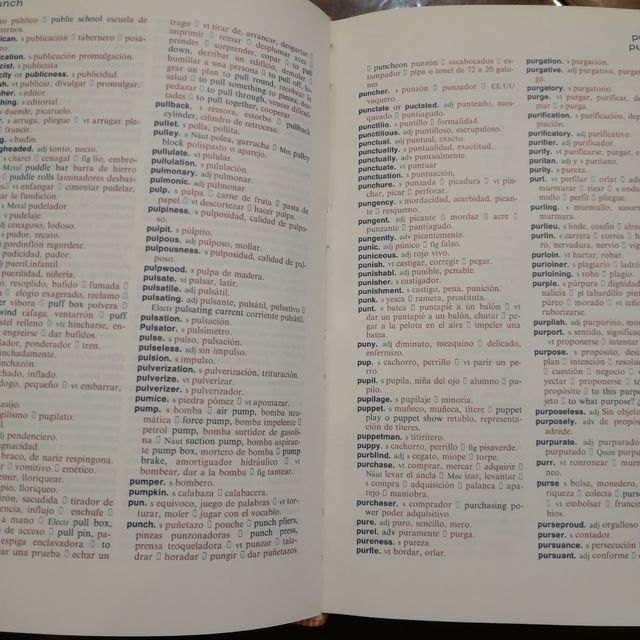 unch
to público ▯ public school escuela de
ican. s publicación ▯ tabernero ▯ posa-
cation. s publicación promulgación.
cist. s publicista
city or publicness. s publicidad.
sh. vt publicar, divulgar ▯ promulgar.
her. s editor.
hing. s editorial.
s duende, picaruelo.
s arruga, pliegue ▯ vt arrugar ple-
▯ fruncir.
g. s budin.
gheaded. adj tonto, necio.
s charci ▯ cenagal ▯ fig lio, embro-
Metal puddle bar barra de hierro
▯ puddle rolls laminadores desbas-
▯ vt enfangar ▯ cimentar pudelar,
ar la fundición.
s Metal pudelador.
s pudelaje.
dj cenagoso, lodoso.
s pudor, recato.
dj gordinflón regordete.
s pudicidad, pudor.
dj pueril, infantil.
s puerilidad, niñería.
lo, resoplido, bufido ▯ fumada ▯
▯ elogio exagerado, reclamo ▯
er víbora ▯ puff box polvera ▯
wind ráfaga, ventarrón ▯ puff
stel relleno ▯ vti hincharse, en-
engreirse ▯ dar bufidos.
lador, ponderador ▯ tren.
nchadamente.
nchazón.
chado, inflado.
dogo, pequeño ▯ vt embarrar,
asijo.
gilismo ▯ pugilato.
dj pendenciero.
gnacidad.
braco, de nariz respingona.
▯ vomitivo ▯ emético.
mir, lloriquear.
lloriqueo.
irón, sacudida ▯ tirador de
encia, influjo ▯ enchufe ▯
a mano ▯ Electr pull box,
de acceso ▯ pull pin, pa-
espiga enclavadora ▯ to
ar una prueba ▯ echar un
trago ▯ vt tirar de, arrancar, desgarrar ▯
imprimir ▯ remar ▯ desplumar aves ▯
prender ▯ sorprender, copar ▯ to pull
down, derribar un edificio, demoler ▯
humillar a una persona ▯ to pull off, lo-
grar un plan ▯ to pull round, recobrar la
salud ▯ to pull something to pieces, des-
pedazar ▯ to pull through, vencer dificul-
tades ▯ to pull together, cooperar.
pullback. s rémora, estorbo ▯ pullback
cylinder, cilindro de retroceso.
pullet. s polla, pollita.
pulley. s Náut polea, garrucha ▯ Mec pulley
block polispasto o aparejo.
pullulate. vt pulular.
pullulation. s pululación.
pulmonary. adj pulmonar.
pulmonic. adj pulmonar.
pulp. s pulpa ▯ carne de fruta ▯ pasta de
papel ▯ vt descortezar ▯ hacer pulpa.
pulpiness. s pulposidad, calidad de pulpo-
so.
pulpit. s púlpito.
pulpous. adj pulposo, mollar.
pulpousness. s pulposidad, calidad de pul-
po.
pulpwood. s pulpa de madera.
pulsate. vt pulsar, latir.
pulsatile. adj pulsátil.
pulsating. adj pulsante, pulsátil, pulsativo ▯
Electr pulsating current corriente pulsátil.
pulsation. s pulsación.
Pulsator. s pulsímetro.
pulse. s pulso, pulsación.
pulseless. adj sin impulso.
pulsion. s impulso.
pulverization. s pulverización, trituración.
pulverize. vt pulverizar.
pulverizer. s pulverizador.
pumice. s piedra pómez ▯ vt apomazar.
pump. s bomba ▯ air pump, bomba neu-
mática ▯ force pump, bomba impelente ▯
petrol pump, bomba surtidor de gasoli-
na ▯ Náut suction pump, bomba aspiran-
te pump box, mortero de bomba ▯ pump
brake, amortiguador hidráulico ▯ vt
bombear, dar a la bomba ▯ fig tantear.
pumper. s bombero.
pumpkin. s calabaza ▯ calabacera.
pun. s equívoco, juego de palabras ▯ vt tor-
turar, moler ▯ jugar con el vocablo.
punch. s puñetazo ▯ ponche ▯ punch pliers,
pinzas punzonadoras ▯ punch press,
prensa troqueladora ▯ vt punzar ▯ tala-
drar ▯ horadar ▯ pungir ▯ dar puñetazos
▯ puncheon punzón ▯ sacabocados ▯ es-
tampador ▯ pipa o tonel de 72 a 20 galo-
nes.
puncher. s punzón ▯ punzador ▯ EE.UU
vaquero.
punctate or punctated. adj punteado, mos-
queado ▯ puntiagudo.
punctilio. s puntillo ▯ formalidad.
punctilious. adj puntilloso, escrupuloso.
punctual. adj puntual, exacto.
punctuality. s puntualidad, exactitud.
punctually. adv puntualmente.
punctuate. vt puntuar
punctuation. s puntuación.
punchure. s punzada ▯ picadura ▯ vt pin-
char, picar ▯ perforar.
pungency. s mordacidad, acerbidad, pican-
te ▯ resquemo.
pungent. adj picante ▯ mordaz ▯ acre ▯
punzante ▯ puntiagudo.
pungently. adv picantemente.
punic. adj púnico ▯ fig falso.
puniceous. adj rojo vivo.
punish. vt castigar, corregir ▯ pegar.
punishabl. adj punible, penable.
punisher. s castigador.
punishment. s castigo, pena, punición.
punk. s yesca ▯ ramera, prostituta.
punt. s batea ▯ puntapié a un balón ▯ vt
dar un puntapié a un balón, chutar ▯ pe-
gar a la pelota en el aire ▯ impeler una
batea.
puny. adj diminuto, mezquino ▯ delicado,
enfermizo.
pup. s cachorro, perrillo ▯ vt parir un pe-
rro.
pupil. s pupila, niña del ojo ▯ alumno ▯ pu-
pilo.
pupilage. s pupilaje ▯ minoria.
puppet. s muñeco, muñeca, títere ▯ puppet
play o puppet show retablo, representa-
ción de títeres.
puppetman. s titiritero.
puppy. s cachorro, perrillo ▯ fig pisaverde.
purblind. adj s cegato, miope ▯ torpe.
purchase. vt comprar, mercar ▯ adquirir ▯
Náut levar el ancla ▯ Mec izar, levantar ▯
s compra ▯ adquisición ▯ palanca ▯ apa-
rejo ▯ maniobra.
purchaser. s comprador ▯ purchasing po-
wer poder adquisitivo.
pure. adj puro, sencillo, mero.
purel. adv puramente ▯ purga.
pureness. s pureza.
purfle. vt bordar, orlar.
pu
pu
purgation. s purgación.
purgative. adj purgativo, purga
ga.
purgatory. s purgatorio.
purge. vt purgar, purificar, de
piar ▯ s purga.
purification. s purificación, dep
piación.
purificatory. adj purificativo.
purifier. adj purificador.
purify. vt purificarse, purgar, e
puritan. adj y s puritano.
purity. s pureza.
purl. vt perfilar ▯ orlar ▯ ado
murmurar ▯ rizar ▯ s onda
mullo ▯ perfil ▯ pliegue.
purling. s murmullo, susurr
murmura.
purlieu. s linde, confín ▯ alrec
purlin. s carrera ▯ correa ▯ h
ro, nervadura, nervio ▯ vt
purloin. vt hurtar, robar.
purloiner. s plagiario ▯ ladró
purloining. s robo ▯ plagio.
purple. s púrpura ▯ dignida
nalicia ▯ pl tabardillo pint
púreo ▯ morado ▯ vt teñir
enrojecer.
purplish. adj purpurino, mor
purport. s sentido, significad
▯ vt proponerse ▯ intentar
purpose. s propósito, desig
plan ▯ intención ▯ resoluc
▯ cuestión ▯ negocio ▯ vt
yectar proponerse ▯ to t
propósito ▯ to this purpo
jeto ▯ to what purpose? ¿
purposeless. adj Sin objeto
purposely. adv de propósit
adrede.
purpurate. adj purpurado ▯
purpurado ▯ Quim purpu
purr. vt ronronear ▯ murm
neo.
purse. s bolsa, monedero,
riqueza ▯ colecta ▯ purs
▯ vt embolsar ▯ fruncir
bios.
purseproud. adj orgulloso
purser. s contador.
pursuance. s persecución ▯
pursuant. adj conforme ▯ c